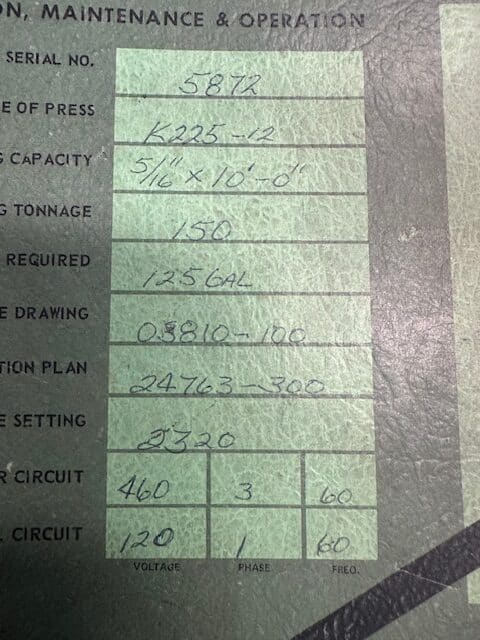 ON, MAINTENANCE & OPERATION
SERIAL NO. 5872
E OF PRESS K225-12
G CAPACITY 5/16" x 10'-0"
G TONNAGE 150
REQUIRED 125 GAL
E DRAWING 03810-100
TION PLAN 24763-300
E SETTING 2320
R CIRCUIT 460 3 60
L CIRCUIT 120 1 60
VOLTAGE PHASE FREQ.